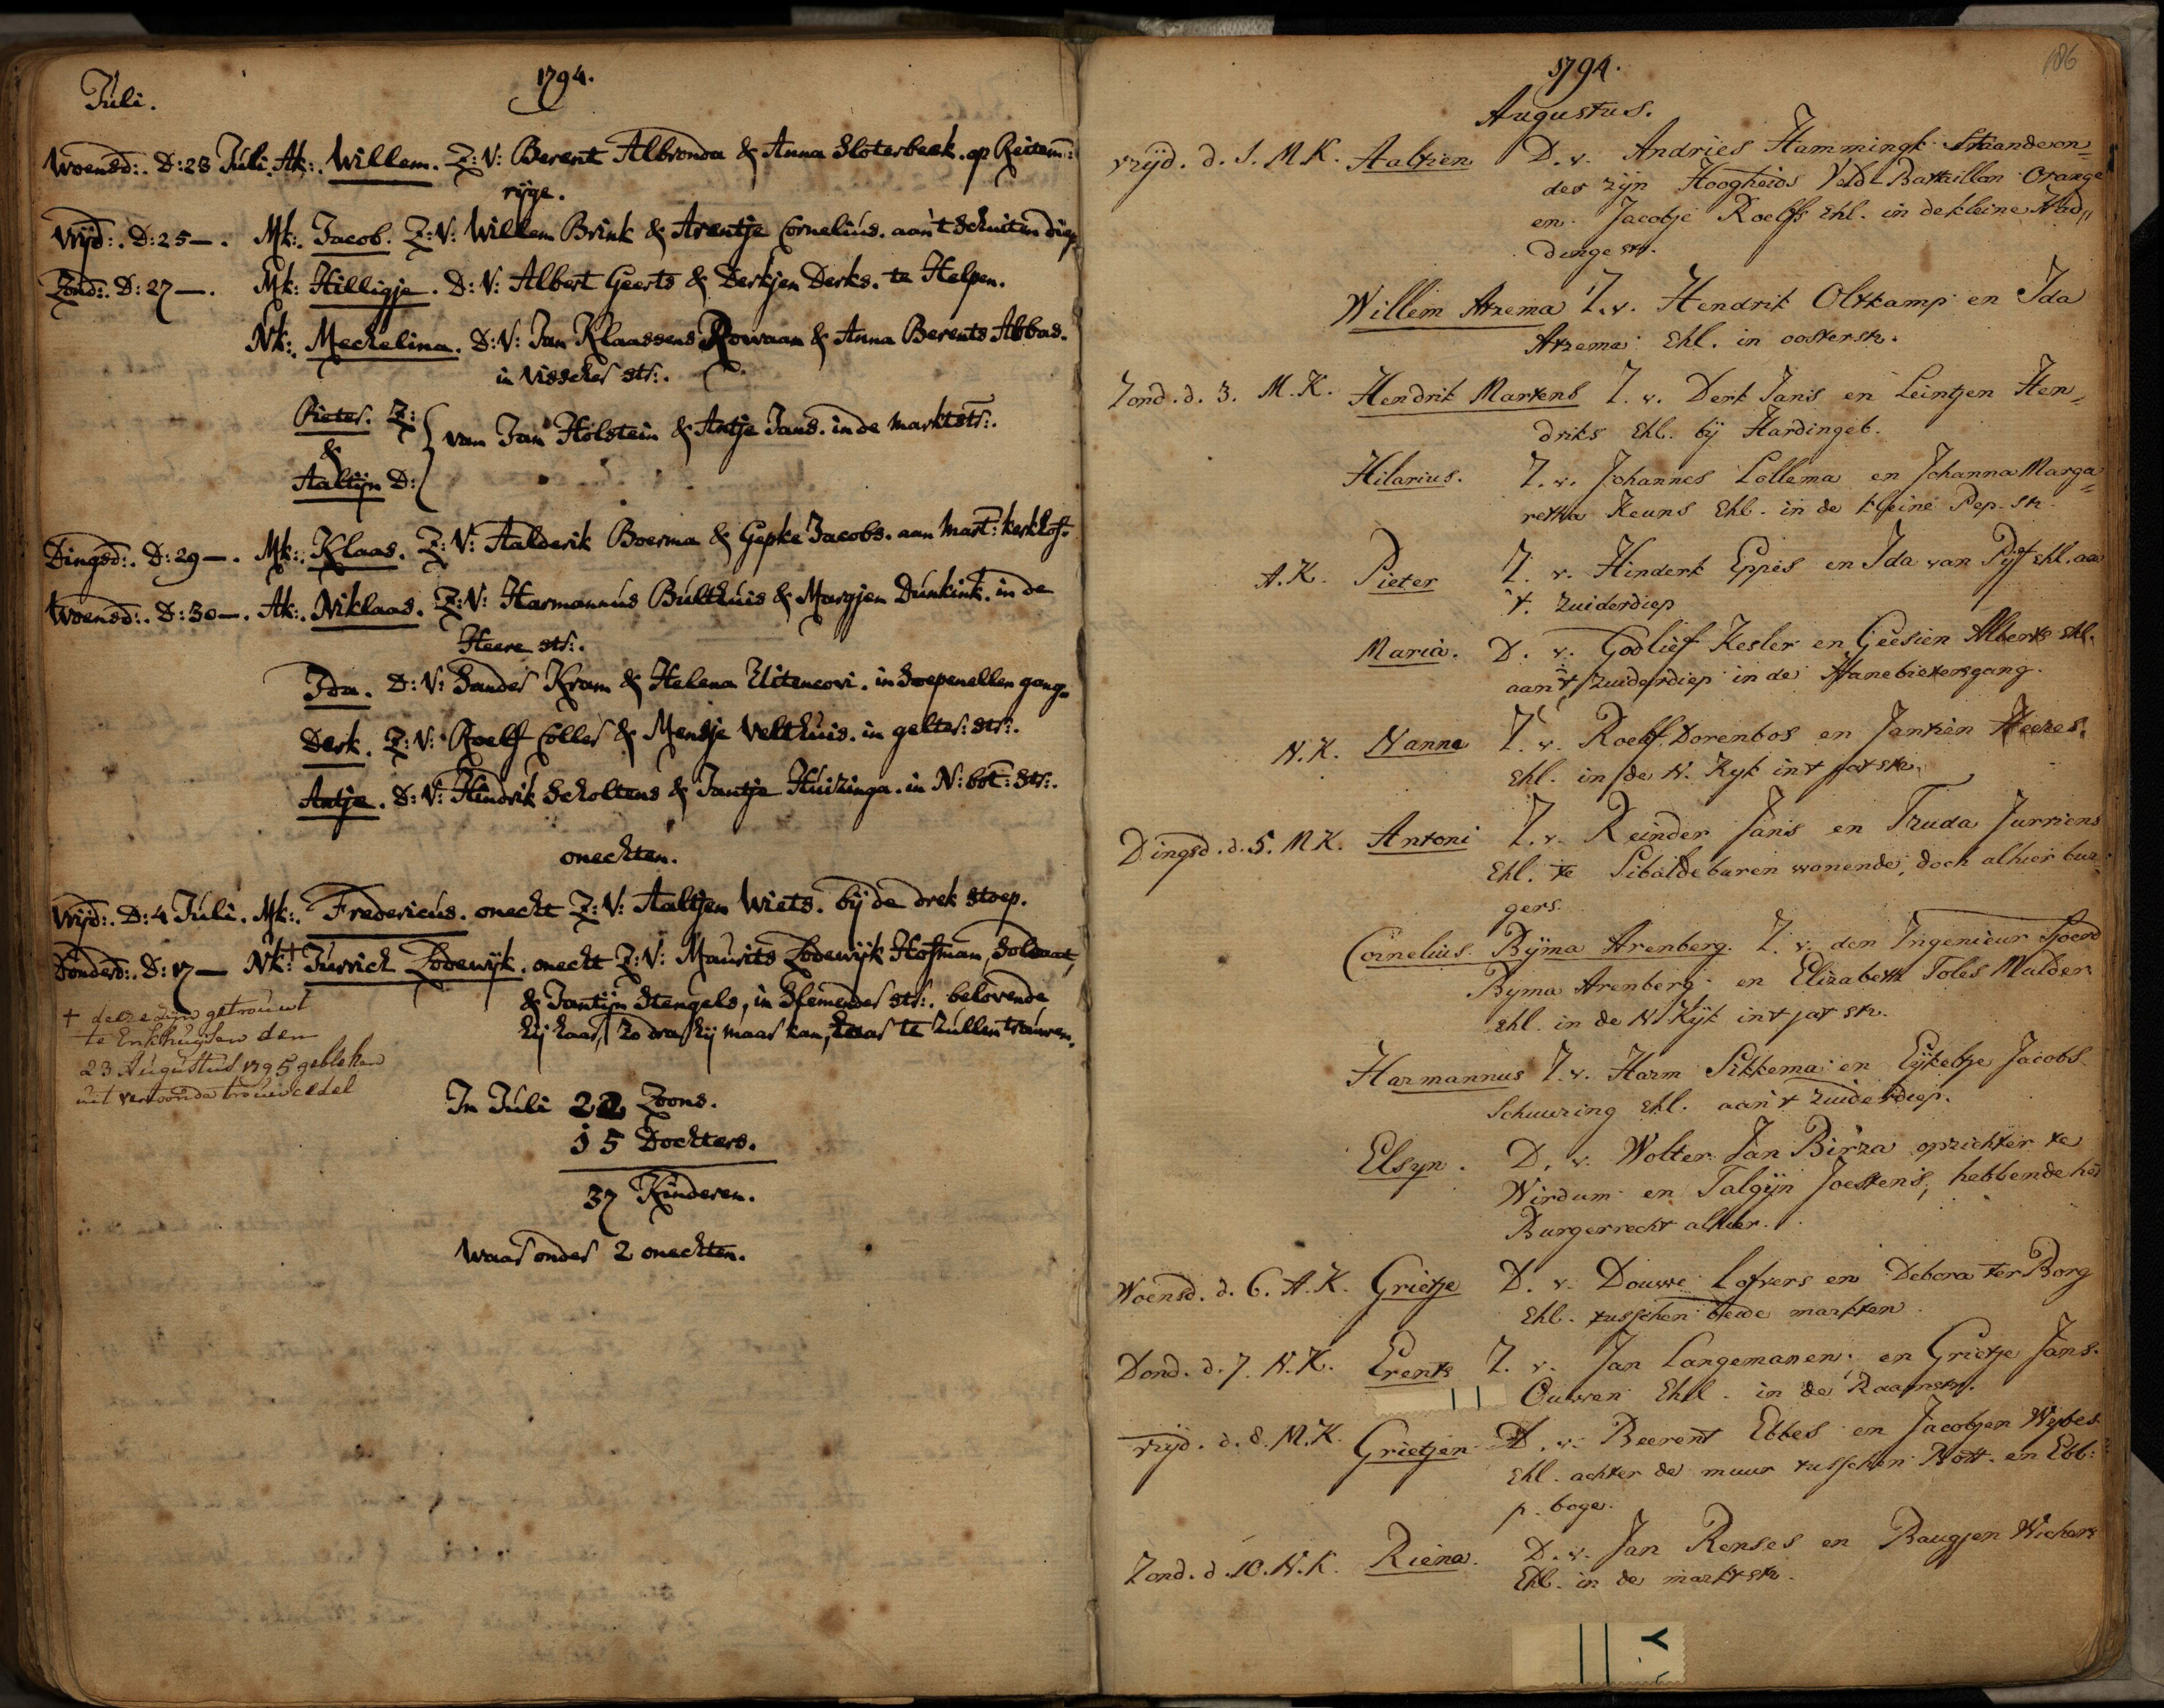 Juli.
1794.
Woensd:. D: 23 Juli. Ak:. Willem. Z: V: Berent Albronda & Anna Sloterbeek. op Reitem:
rijge.
Vrijd:. D: 25 —. Mk:. Jacob. Z: V: Willem Brink & Arentje Cornelius. aan 't Schuiten diep
Zond:. D: 27 —. Mk: Hilligje. D: V: Albert Geerts & Derkjen Derks. te Helpen.
Nk:. Mechelina. D: V: Jan Klaassens Rowaan & Anna Berents Abbas.
in Visscher str:.
Pieter. Z:
& van Jan Holstein & Antje Jans. in de Marktstr:.
Aaltijn D:
Dingsd:. D: 29 —. Mk:. Klaas. Z: V: Aalderik Boerma & Gepke Jacobs. aan Mart: kerkhof.
Woensd:. D: 30 —. Ak:. Niklaas. Z: V: Harmannus Bulthuis & Margjen Dunkink. in de
Heere str:.
Ida. D: V: Sander Kram & Helena in gang.
Derk. Z: V: Roelf Coller & Mensje Velthuis. in gelter: str:.
Antje. D: V: Hindrik Scholtens & Jantje Huizinga. in N: bot: Str:.
onechten.
Vrijd:. D: 4 Juli. Mk:. Fredericus. onecht Z: V: Aaltjen Wiets. bij de drek stoep.
Donderd:. D: 17 — Nk:† Jurrich Lodewijk. onecht Z: V: Maurits Lodewijk Hofman, Soldaat,
& Jantijn Stengels, in Slemender str:. belovende
hij haar, zo dra hij maar kan, te zullen trouwen.
† deeze zijn getrouwt
te Enkhuijsen den
23 Augustus 1795 gebleken
uit vertoonde trouwcedel
In Juli 22 Zoons.
15 Dochters.
37 Kinderen.
Waar onder 2 onechten.
186
1794.
Augustus.
Vrijd. d. 1. M.K. Aaltien D. v. Andries Hammingh Staande on=
der zijn Hoogheids Veld-Battaillon Orange
en Jacobje Roelfs Ehl. in de kleine Had„
dinge str.
Willem Atzema Z. v. Hendrik Oltkamp en Ida
Atzema Ehl. in oosterstr.
Zond. d. 3. M.K. Hendrik Martens Z. v. Derk Jans en Leintjen Hen„
driks Ehl. bij Hardingeb.
Hilarius. Z. v. Johannes Lollema en Johanna Marga=
retha Keuns Ehl. in de kleine Pep. str.
A.K. Pieter Z. v. Hinderk Eppes en Ida van Pijt Ehl. aan
't Zuiderdiep
Maria. D. v. Godlief Kesler en Geesien Alberts Ehl.
aan 't Zuiderdiep in de Hanebietersgang.
N.K. Nanne Z. v. Roelf Dorenbos en Jantien Heeres.
Ehl. in de N. Kijk in 't jat str.
Dingsd. d. 5. M.K. Antoni Z. v. Reinder Jans en Truda Jurriens
Ehl. te Sibaldeburen wonende, doch alhier bur=
gers.
Cornelius Bijma Arenberg. Z. v. den Ingenieur Sjoerd
Bijma Arenberg en Elizabeth Toles Mulder
Ehl. in de N. Kijk in 't jat str.
Harmannus Z. v. Harm Sikkema en Eijkeltje Jacobs
Schuuring Ehl. aan 't Zuiderdiep.
Elsyn. D. v. Wolter Jan Birza opzichter te
Wirdum en Talgijn Joestens, hebbende het
Burgerrecht alhier.
Woensd. d. 6. A.K. Grietje D. v. Douwe Lofvers en Debora ter Borg
Ehl. tusschen beide markten.
Dond. d. 7. N.K. Erents Z. v. Jan Langemanen en Grietje Jans.
Ouwen Ehl. in de Raamstr.
Vrijd. d. 8. M.K. Grietjen D. v. Beerent Ebbes en Jacobjen Wybes
Ehl. achter de muur tusschen Bott. en Ebb:
p. boge.
Zond. d. 10. N.K. Riena. D. v. Jan Renses en Baugjen Wichers
Ehl. in de markt str.